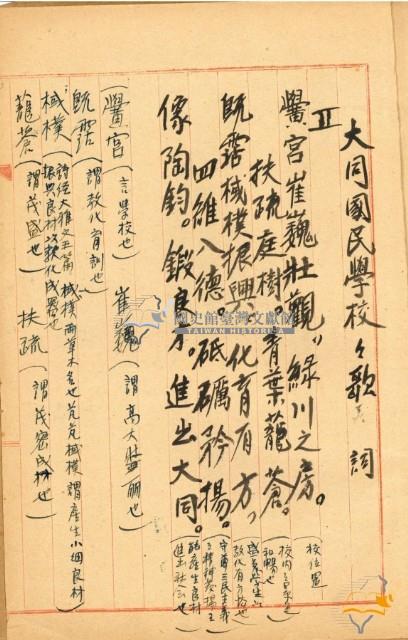 大同國民學校々歌 詞
II
黌宮崔巍壯觀〃綠川之旁。
扶疏庭樹青葉蘢蒼。
既霑棫樸振興。化育有方〃
四維八德。砥礪矜揚。
像陶鈞。鍛良才。進出大同。
校位置
進出社會也
黌宮(言學校也) 崔巍(謂高大壯麗也)
既霑(謂教化育訓也)
棫樸(詩經大雅文王篇 棫樸兩草木名也芃芃棫樸謂產生小細良材
振興良材以教化成器也
蘢蒼(謂茂盛也) 扶疏(謂茂密成林也)
國史館臺灣文獻館
TAIWAN HISTORICA